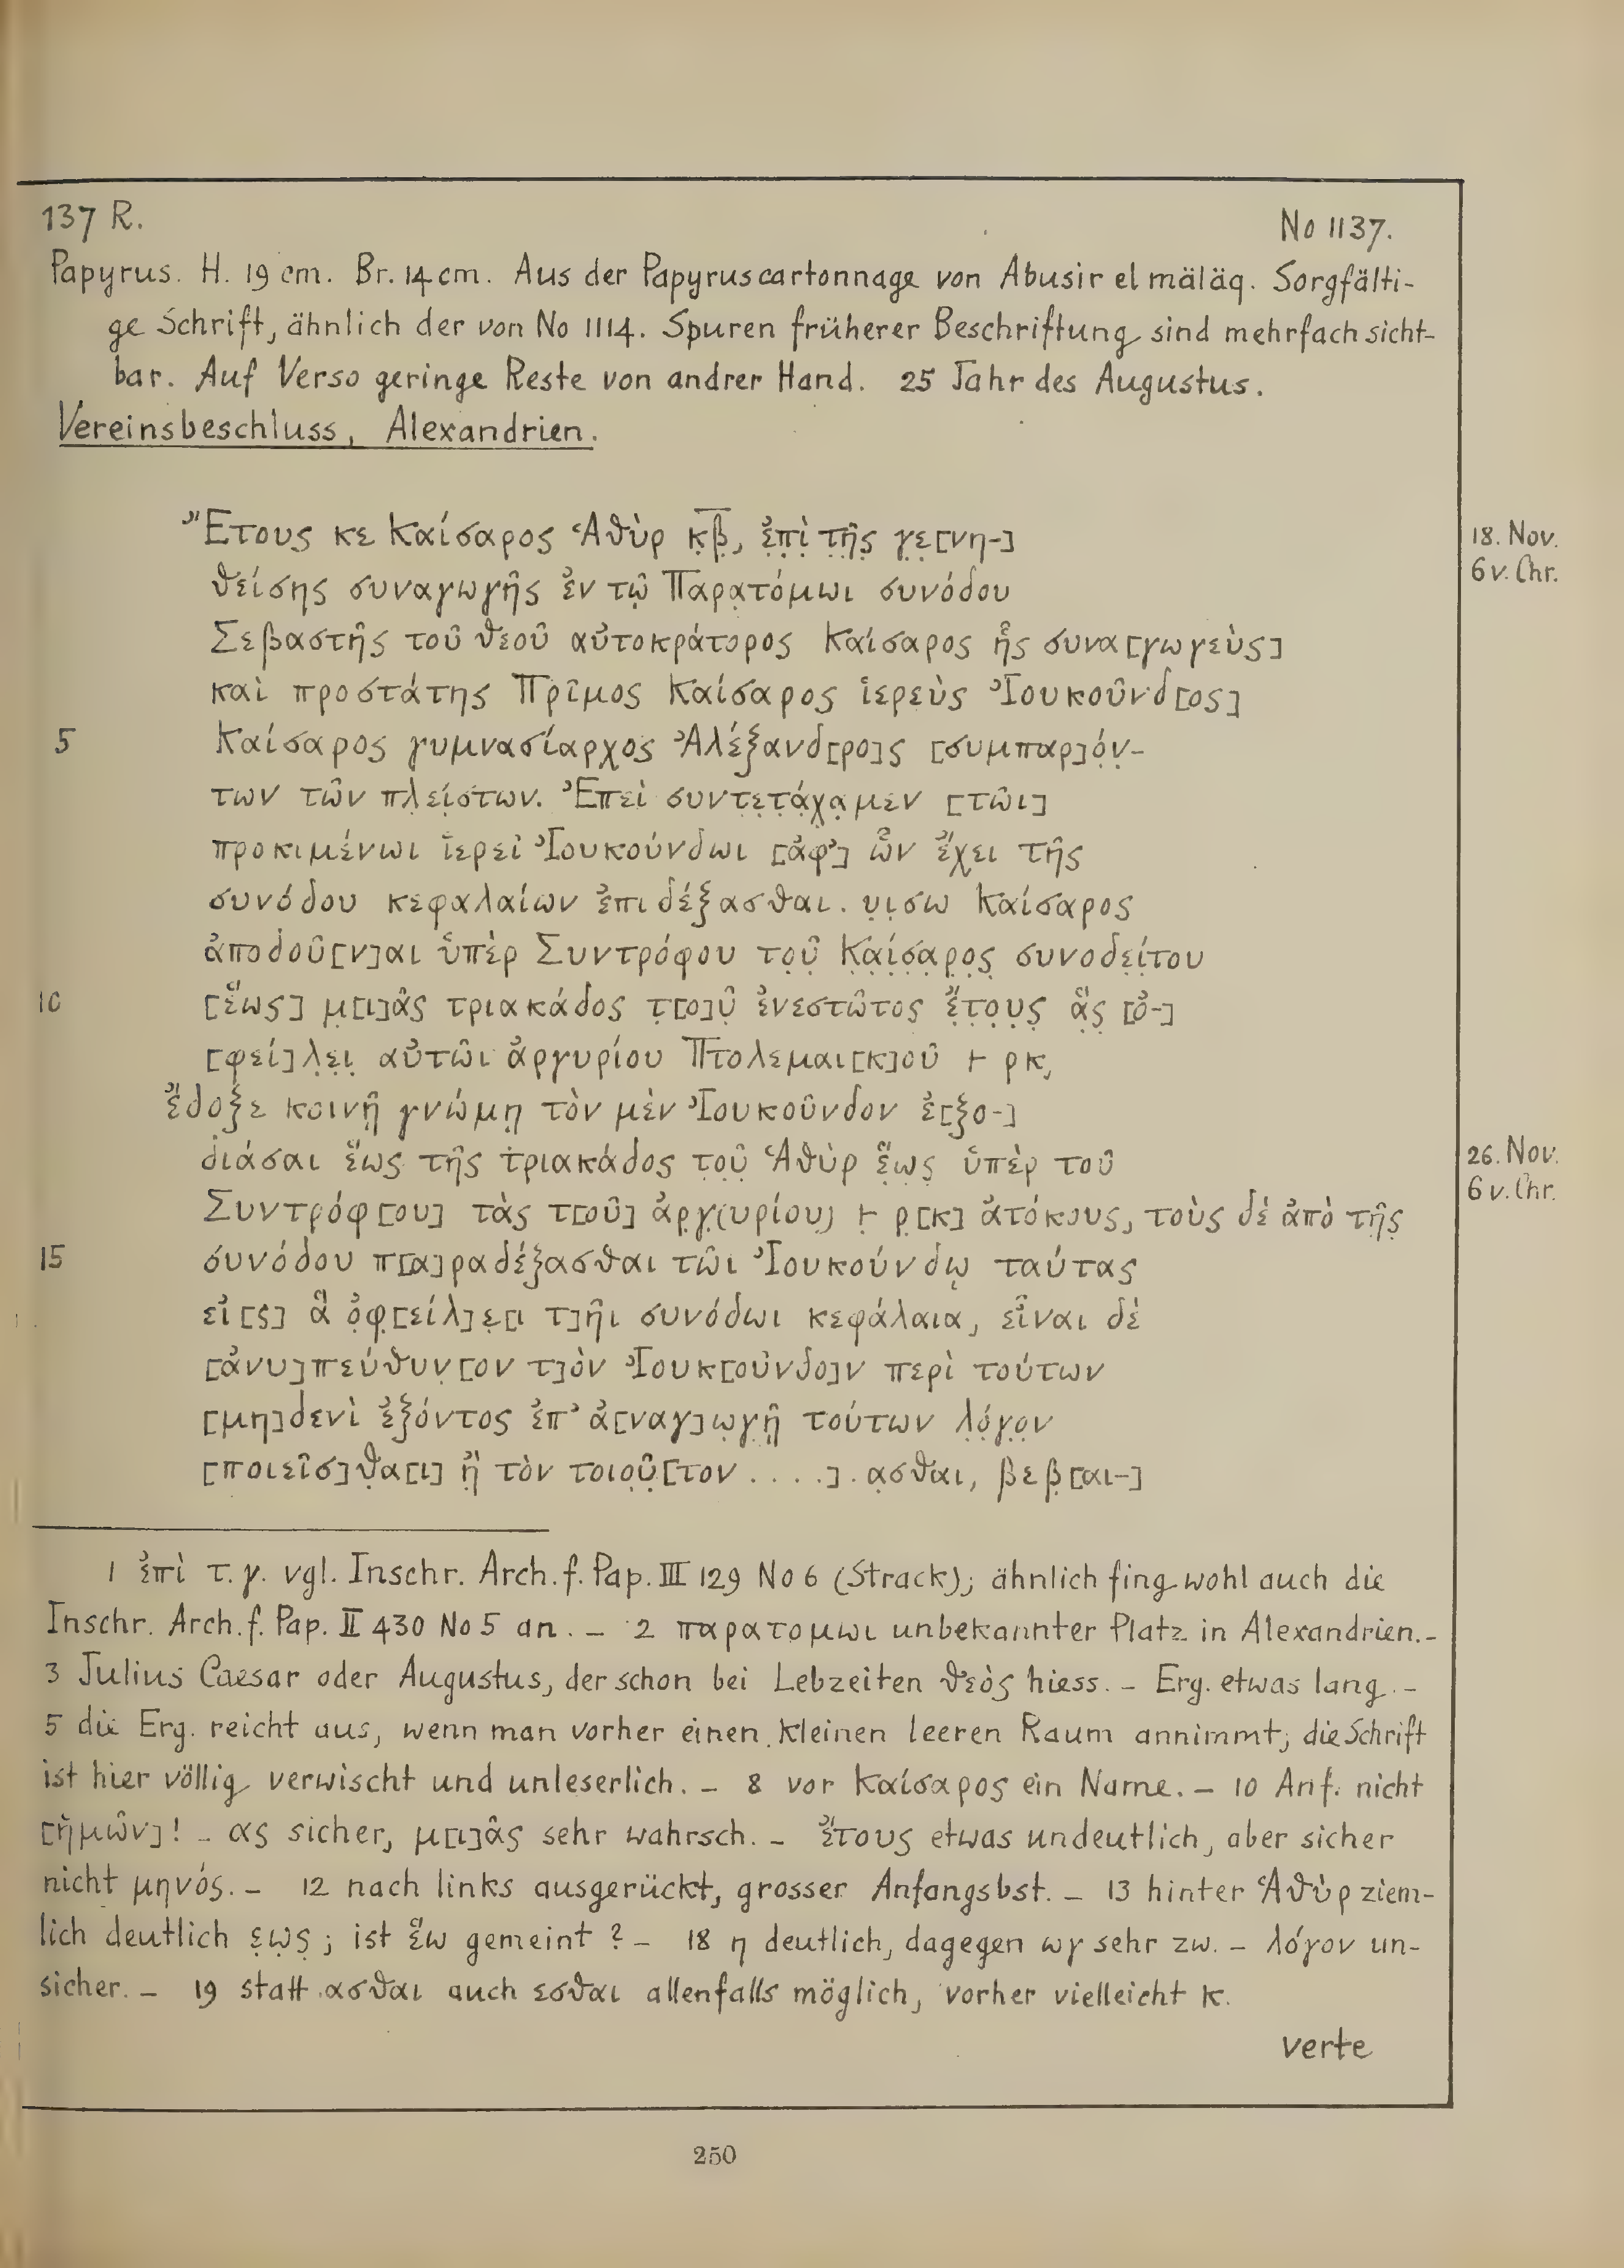 137 R. No 1137.
Papyrus. H. 19 cm. Br. 14 cm. Aus der Papyruscartonnage von Abusir el mäläq. Sorgfälti-
ge Schrift, ähnlich der von No 1114. Spuren früherer Beschriftung sind mehrfach sicht-
bar. Auf Verso geringe Reste von andrer Hand. 25 Jahr des Augustus.
Vereinsbeschluss, Alexandrien.
Ἔτους κε Καίσαρος Ἁθὺρ κ̣β̣̅, ἐ̣π̣ὶ̣ τ̣ῆ̣ς̣ γ̣ε̣[νη-] 18. Nov.
6 v. Chr.
θείσης συναγωγῆς ἐν τῷ Παρα̣τόμωι συνόδου
Σεβαστῆς τοῦ θεοῦ αὐτοκράτορος Καίσαρος ἧς συνα[γωγεὺς]
καὶ προστάτης Πρῖμος Καίσαρος ἱερεὺς Ἰουκοῦνδ[ος]
5 Καίσαρος γυμνασίαρχος Ἀλέξανδ[ρο]ς [συμπαρ]ό̣ν̣-
των τῶν πλ̣εί̣στων. Ἐπεὶ συντ̣ε̣τ̣ά̣χ̣α̣μεν [τῶι]
προκιμένωι ἱερεῖ Ἰουκούνδωι [ἀφ’] ὧν ἔχει τῆς
συνόδου κεφαλαίων ἐπιδέξασθαι. υ̣ι̣σω Καίσαρος
ἀποδοῦ[ν]αι ὑπὲρ Συντρόφου το̣ῦ̣ Κ̣α̣ί̣σ̣α̣ρ̣ο̣ς̣ συνοδε̣ί̣του
10 [ἕως] μ̣[ι]ᾶς τριακάδος τ̣[ο]ῦ̣ ἐνεστῶτος ἔ̣τ̣ο̣υ̣ς̣ ἃ̣ς̣ [ὀ-]
[φεί]λ̣ε̣ι̣ αὐτῶι ἀργυρίου Πτολεμαι[κ]οῦ 𐅂 ρκ,
ἔδοξε κοινῇ γνώμῃ τὸν μὲν Ἰουκοῦνδον ἐ[ξο-]
διάσαι ἕως τῆς τριακάδος τ̣ο̣ῦ̣ Ἁθὺρ ἕ̣ω̣ς̣ ὑπὲρ τοῦ 26. Nov.
6 v. Chr.
Συντρόφ[ου] τὰς τ[οῦ] ἀρ̣γ̣(υρίου) 𐅂 ρ̣[κ] ἀτόκους, τοὺς δὲ ἀπὸ τῆ̣ς̣
15 συνόδου π[α]ραδέξασθαι τῶι Ἰουκούνδῳ ταύτας
εἰ[ς] ἃ ὀ̣φ̣[είλ]ε̣[ι τ]ῆι συνόδωι κεφάλαια, εἶναι δὲ
[ἀνυ]πεύθυν̣[ον τ]ὸν Ἰουκ[οῦνδο]ν περὶ τούτων
[μη]δενὶ ἐξόντος ἐπ’ ἀ[ναγ]ω̣γ̣ῇ τούτων λ̣ό̣γ̣ο̣ν
[ποιεῖσ]θ̣α[ι] ἢ̣ τὸν τοιο̣ῦ̣[τον . . . .] . α̣σθαι, βεβ̣[αι-]
1 ἐπὶ τ. γ. vgl. Inschr. Arch. f. Pap. III 129 No 6 (Strack); ähnlich fing wohl auch die
Inschr. Arch. f. Pap. II 430 No 5 an. – 2 παρατομωι unbekannter Platz in Alexandrien. –
3 Julius Caesar oder Augustus, der schon bei Lebzeiten θεὸς hiess. – Erg. etwas lang. –
5 die Erg. reicht aus, wenn man vorher einen kleinen leeren Raum annimmt; die Schrift
ist hier völlig verwischt und unleserlich. – 8 vor Καίσαρος ein Name. – 10 Anf. nicht
[ἡμῶν]! – ας sicher, μ[ι]ᾶς sehr wahrsch. – ἔτους etwas undeutlich, aber sicher
nicht μηνός. – 12 nach links ausgerückt, grosser Anfangsbst. – 13 hinter Ἁθὺρ ziem-
lich deutlich ε̣ω̣ς̣; ist ἕω gemeint? – 18 η deutlich, dagegen ωγ sehr zw. – λόγον un-
sicher. – 19 statt .ασθαι auch εσθαι allenfalls möglich, vorher vielleicht κ.
verte
250